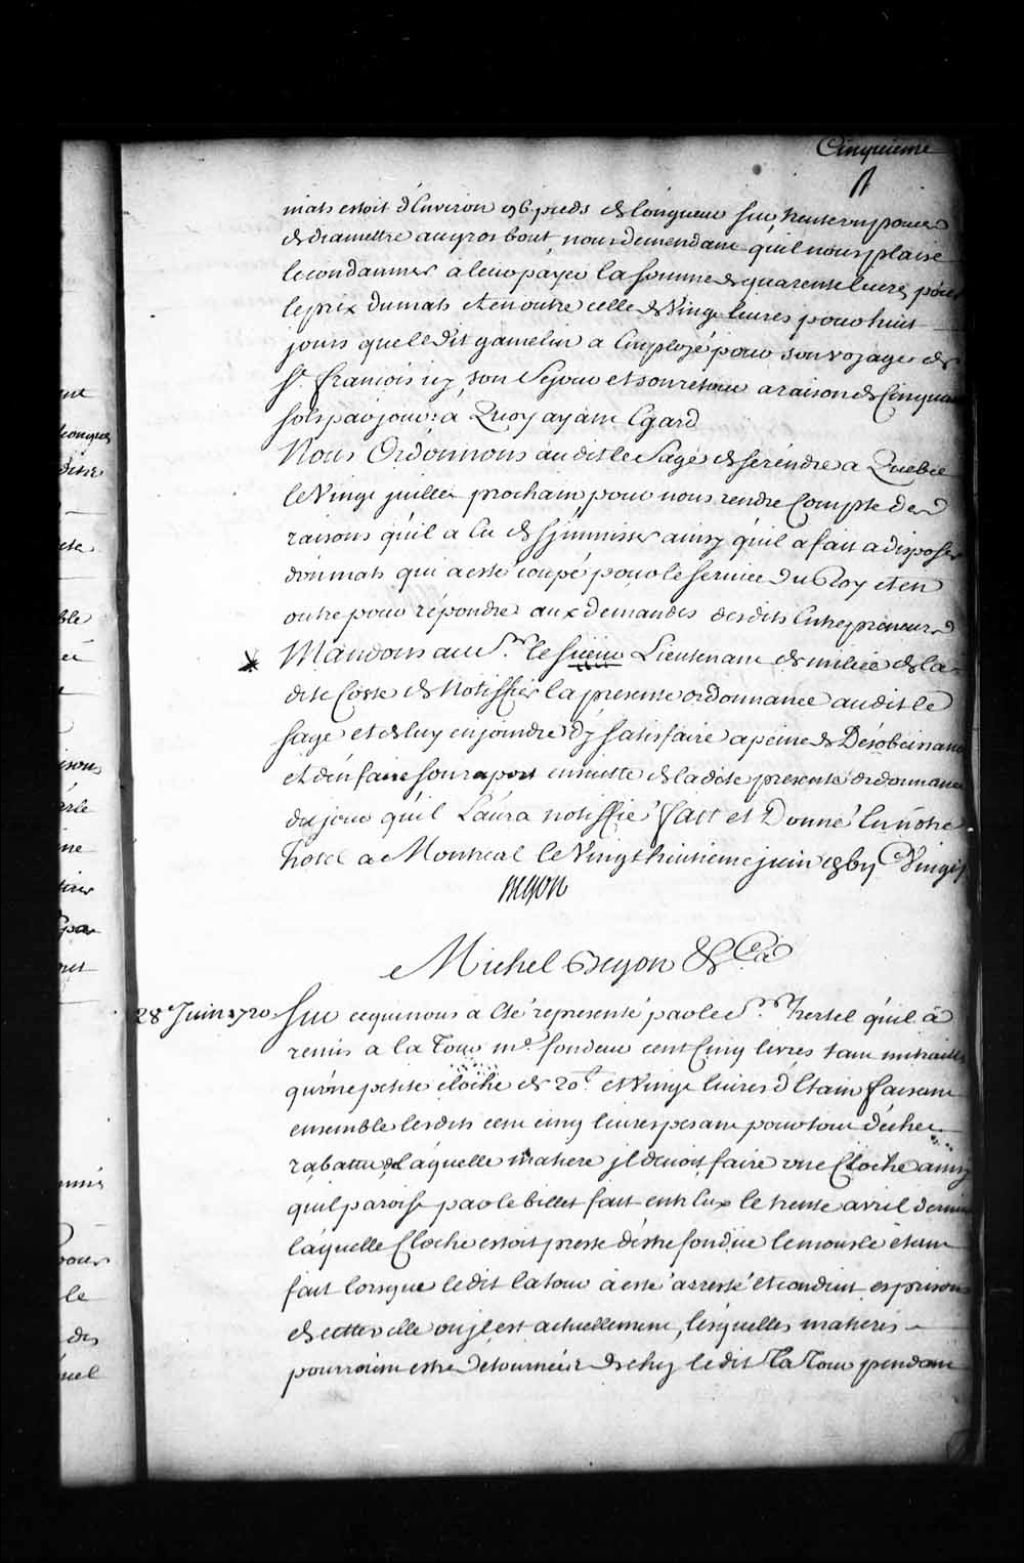 Cinquieme
mats estoit d'Environ 96 pieds de longueur sur trente un pouces
de diamettre au gros bout, nous demendant qu'il nous plaise
le condamner a leur payer la somme de quarente livres pour
le prix du mats et en outre celle de Vingt livres pour huit
jours que le dit gamelin a Employé pour son voyage de
St. francois icy, son Sejour et son retour a raison de Cinquante
sols par jour; a Quoy ayant Egard
Nous Ordonnons audit le Sage de se rendre a Quebec
le Vingt juillet prochain pour nous rendre Compte des
raisons qu'il a Eu de s'jmmisser ainsy qu'il a fait a disposer
d'un mats qui a esté coupé pour le service du Roy et en
outre pour répondre aux demandes desdits Entrepreneurs
Mandons au Sr. le Lieutenant de milice de la
dite Coste de Notiffier la presente ordonnance audit le
sage et de luy enjoindre d'y satisfaire a peine de Désobeissance
et d'en faire son raport ensuitte de la dite presente ordonnance
du jour qu'il L'aura notiffié fait et Donné En nôtre
hotel a Montreal le Vingt huitieme juin Vingt
Begon
Michel Begon &Ca
28e Juin 1720 Sur ce qui nous a Esté représenté par le Sr. Hertel qu'il à
remis a la Tour me. fondeur cent Cinq livres tant mitraille
qu'une petite cloche de 20l. et Vingt livres d'Etain faisant
ensemble lesdits cent cinq livres pesant pour tout déchet
rabattu de láquelle matiere jl devoit faire une Cloche ainsy
qu'il paroist par le billet fait entr'Eux le trente avril dernier
láquelle Cloche estoit preste d'éstre fondüe le mousle étant
fait lorsque ledit latour à esté arresté et conduit es prisons
de cette ville ou jl est actuellement, lesquelles matieres
pourroient estre Detournées de chez ledit La Tour pendant